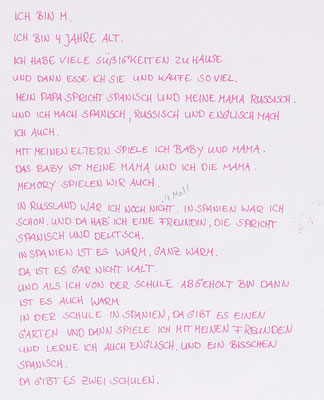 ICH BIN M.
ICH BIN 4 JAHRE ALT.
ICH HABE VIELE SÜßIGKEITEN ZU HAUSE
UND DANN ESSE ICH SIE UND KAUFE SO VIEL.
MEIN PAPA SPRICHT SPANISCH UND MEINE MAMA RUSSISCH.
UND ICH MACH SPANISCH, RUSSISCH UND ENGLISCH MACH
ICH AUCH.
MIT MEINEN ELTERN SPIELE ICH BABY UND MAMA.
DAS BABY IST MEINE MAMA UND ICH DIE MAMA.
MEMORY SPIELEN WIR AUCH.
4 Mal!
IN RUSSLAND WAR ICH NOCH NICHT. IN SPANIEN WAR ICH
SCHON. UND DA HAB' ICH EINE FREUNDIN, DIE SPRICHT
SPANISCH UND DEUTSCH.
IN SPANIEN IST ES WARM, GANZ WARM.
DA IST ES GAR NICHT KALT.
UND ALS ICH VON DER SCHULE ABGEHOLT BIN DANN
IST ES AUCH WARM.
IN DER SCHULE IN SPANIEN, DA GIBT ES EINEN
GARTEN UND DANN SPIELE ICH MIT MEINEN FREUNDEN
UND LERNE ICH AUCH ENGLISCH. UND EIN BISSCHEN
SPANISCH.
DA GIBT ES ZWEI SCHULEN.